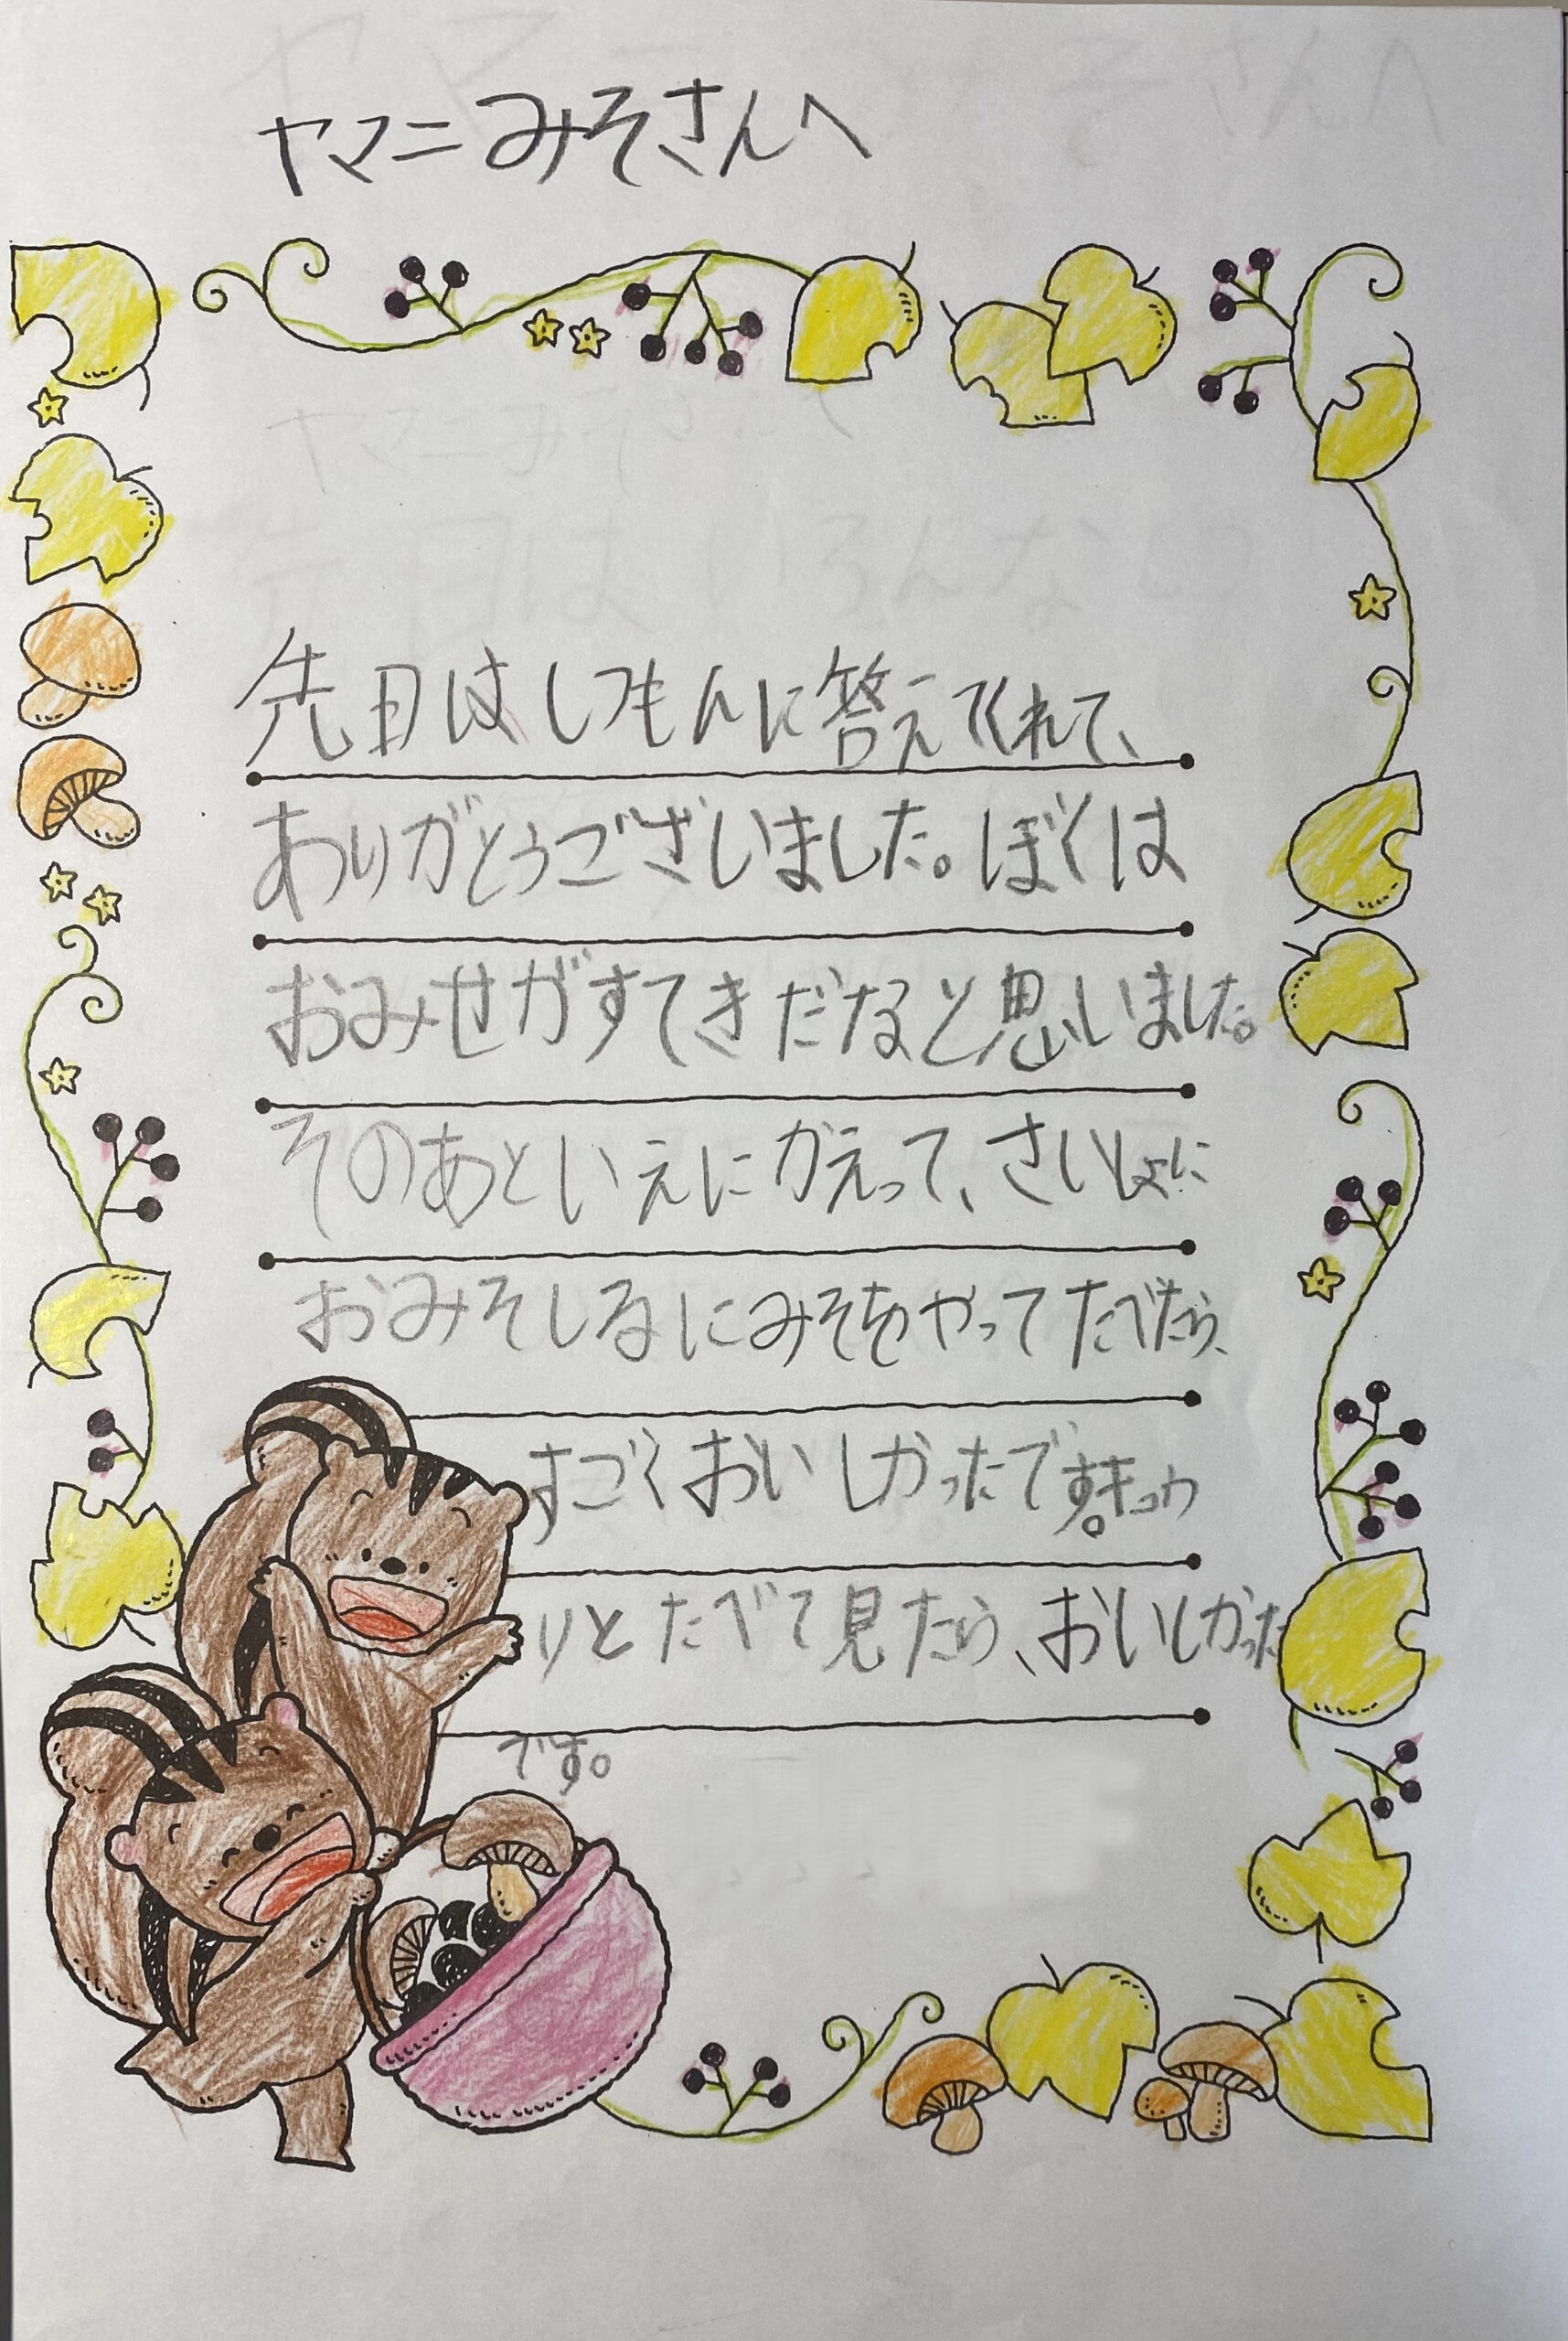 ヤマニみそさんへ
先日はしつもんに答えてくれて、
ありがとうございました。ぼくは
おみせがすてきだなと思いしました。
そのあといえにかえって、さいしょに
おみそしるにみそをやってたべたら、
すごくおいしかったです。キュウ
りとたべて見たら、おいしかった
です。